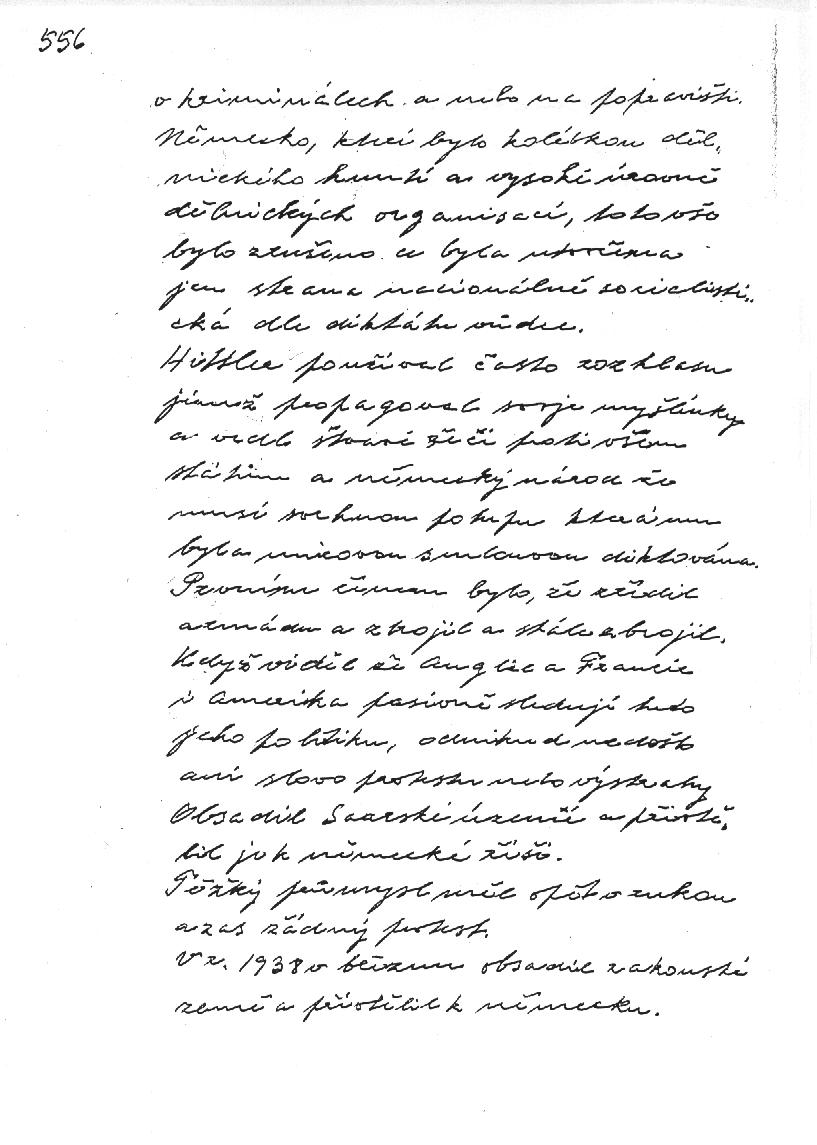 556
v kriminálech a nebo na popravišti.
Německo, které bylo kolébkou děl,
nického hnutí a vysoké úrovně
dělnických organisací, toto vše
bylo zrušeno a byla utvořena
jen strana nacionálně socialisti,,
cká dle diktátu vůdce.
Hittler použival často rozhlasu
jímž propagoval svoje myšlínky
a vedl štvavé řeči proti všem
státům a německý národ že
musí sechnou potupu která mu
byla mírovou smlouvou diktována.
Prvním činem bylo, že zřídil
armádu a zbrojil a stále zbrojil.
Když viděl že Anglie a Francie
i Amerika pasivně sledují tuto
jeho politiku, odnikud nedošlo
ani slovo protestu nebo výstrahy
Obsadil Saarské území a přivtě,
lil je k německé říši.
Těžký průmysl měl opět v rukou
a zas žádný protest.
V r. 1938 v březnu obsadil rakouské
země a přivtělil k německu.